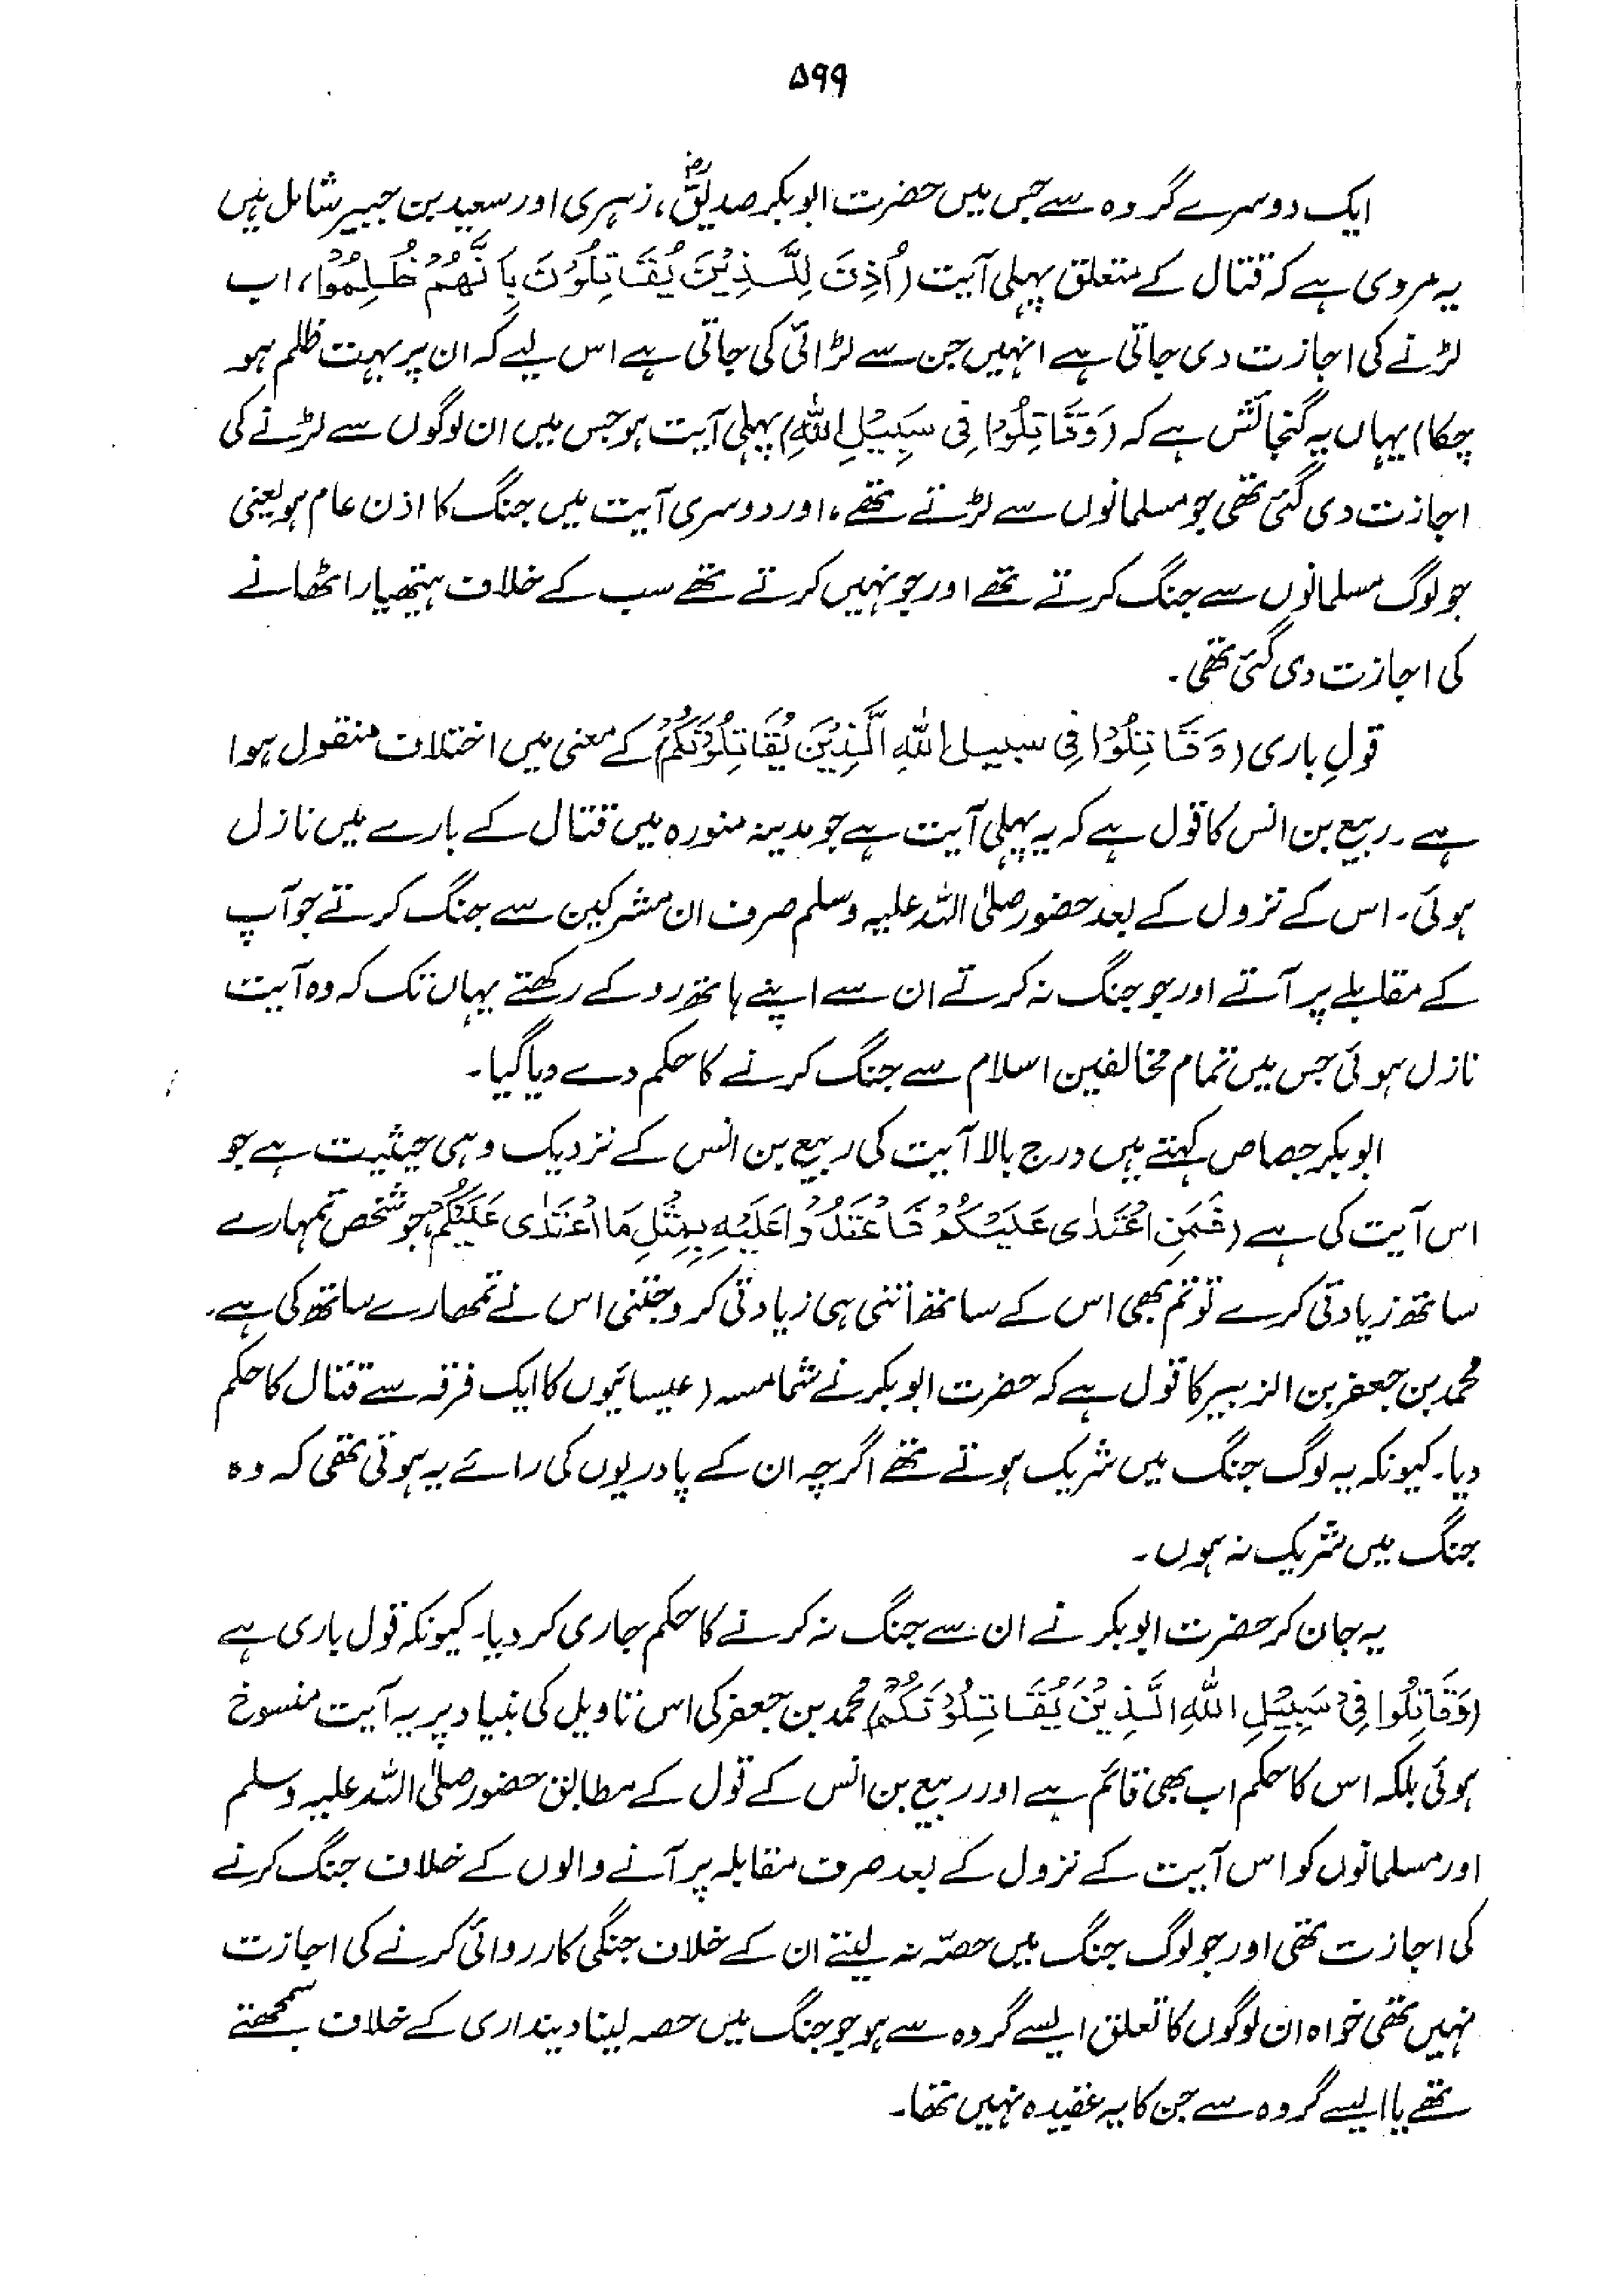 ۵۹۹
ایک دوسرے گروہ سے جس میں حضرت ابوبکر صدیقؓ، زہری اور سعید بن جبیر شامل ہیں
یہ مروی ہے کہ قتال کے متعلق پہلی آیت (اُذِنَ لِلَّذِیْنَ یُقَاتِلُوْنَ بِاَنَّھُمْ ظُلِمُوْا، اب
لڑنے کی اجازت دی جاتی ہے انہیں جن سے لڑائی کی جاتی ہے اس لیے کہ ان پر بہت ظلم ہو
چکا) یہاں یہ گنجائش ہے کہ (وَقَاتِلُوْا فِی سَبِیْلِ اللّٰہِ) پہلی آیت ہو جس میں ان لوگوں سے لڑنے کی
اجازت دی گئی تھی جو مسلمانوں سے لڑتے تھے، اور دوسری آیت میں جنگ کا اذن عام ہو یعنی
جو لوگ مسلمانوں سے جنگ کرتے تھے اور جو نہیں کرتے تھے سب کے خلاف ہتھیار اٹھانے
کی اجازت دی گئی تھی۔
قولِ باری (وَقَاتِلُوْا فِی سبیل اللّٰہِ الَّذِیْنَ یُقَاتِلُوْنَکُمْ) کے معنی میں اختلاف منقول ہوا
ہے۔ ربیع بن انس کا قول ہے کہ یہ پہلی آیت ہے جو مدینہ منورہ میں قتال کے بارے میں نازل
ہوئی۔ اس کے نزول کے بعد حضور صلی اللہ علیہ وسلم صرف ان مشرکین سے جنگ کرتے جو آپ
کے مقابلے پر آتے اور جو جنگ نہ کرتے ان سے اپنے ہاتھ روکے رکھتے یہاں تک کہ وہ آیت
نازل ہوئی جس میں تمام مخالفین اسلام سے جنگ کرنے کا حکم دے دیا گیا۔
ابوبکر جصاص کہتے ہیں درج بالا آیت کی ربیع بن انس کے نزدیک وہی حیثیت ہے جو
اس آیت کی ہے (فَمَنِ اعْتَدٰی عَلَیْکُمْ فَاعْتَدُوْا عَلَیْہِ بِمِثْلِ مَا اعْتَدٰی عَلَیْکُمْ، جو شخص تمہارے
ساتھ زیادتی کرے تو تم بھی اس کے ساتھ اتنی ہی زیادتی کرو جتنی اس نے تمھارے ساتھ کی ہے۔
محمد بن جعفر بن الزبیر کا قول ہے کہ حضرت ابوبکر نے شمامسہ (عیسائیوں کا ایک فرقہ سے قتال کا حکم
دیا۔ کیونکہ یہ لوگ جنگ میں شریک ہوتے تھے اگرچہ ان کے پادریوں کی رائے یہ ہوتی تھی کہ وہ
جنگ میں شریک نہ ہوں۔
یہ جان کر حضرت ابوبکر نے ان سے جنگ نہ کرنے کا حکم جاری کر دیا۔ کیونکہ قول باری ہے
(وَقَاتِلُوا فِیْ سَبِیْلِ اللّٰہِ الَّذِیْنَ یُقَاتِلُوْنَکُمْ) محمد بن جعفر کی اس تاویل کی بنیاد پر یہ آیت منسوخ
ہوئی بلکہ اس کا حکم اب بھی قائم ہے اور ربیع بن انس کے قول کے مطابق حضور صلی اللہ علیہ وسلم
اور مسلمانوں کو اس آیت کے نزول کے بعد صرف مقابلہ پر آنے والوں کے خلاف جنگ کرنے
کی اجازت تھی اور جو لوگ جنگ میں حصّہ نہ لیتے ان کے خلاف جنگی کارروائی کرنے کی اجازت
نہیں تھی خواہ ان لوگوں کا تعلق ایسے گروہ سے ہو جو جنگ میں حصہ لینا دینداری کے خلاف سمجھتے
تھے یا ایسے گروہ سے جن کا یہ عقیدہ نہیں تھا۔